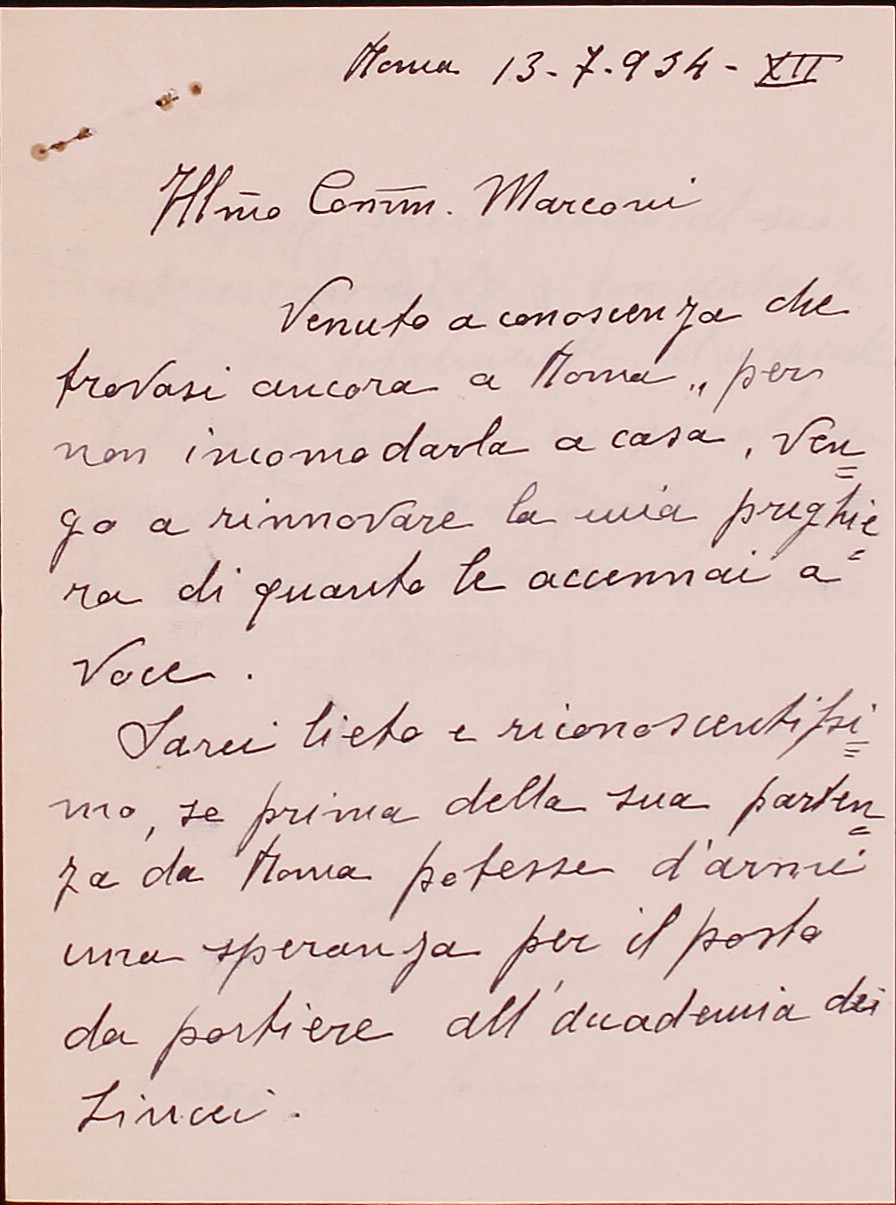 Roma 13-7-934-XII
Illm̅o Com̅m. Marconi
Venuto a conoscenza che
trovasi ancora a Roma „ per
non incomodarla a casa, ven=
go a rinnovare la mia preghie=
ra di quanto le accennai a
voce.
Sarei lieto e riconoscentissi=
mo, se prima della sua parten=
za da Roma potesse d'armi
una speranza per il posto
da portiere all'accademia dei
Lincei.